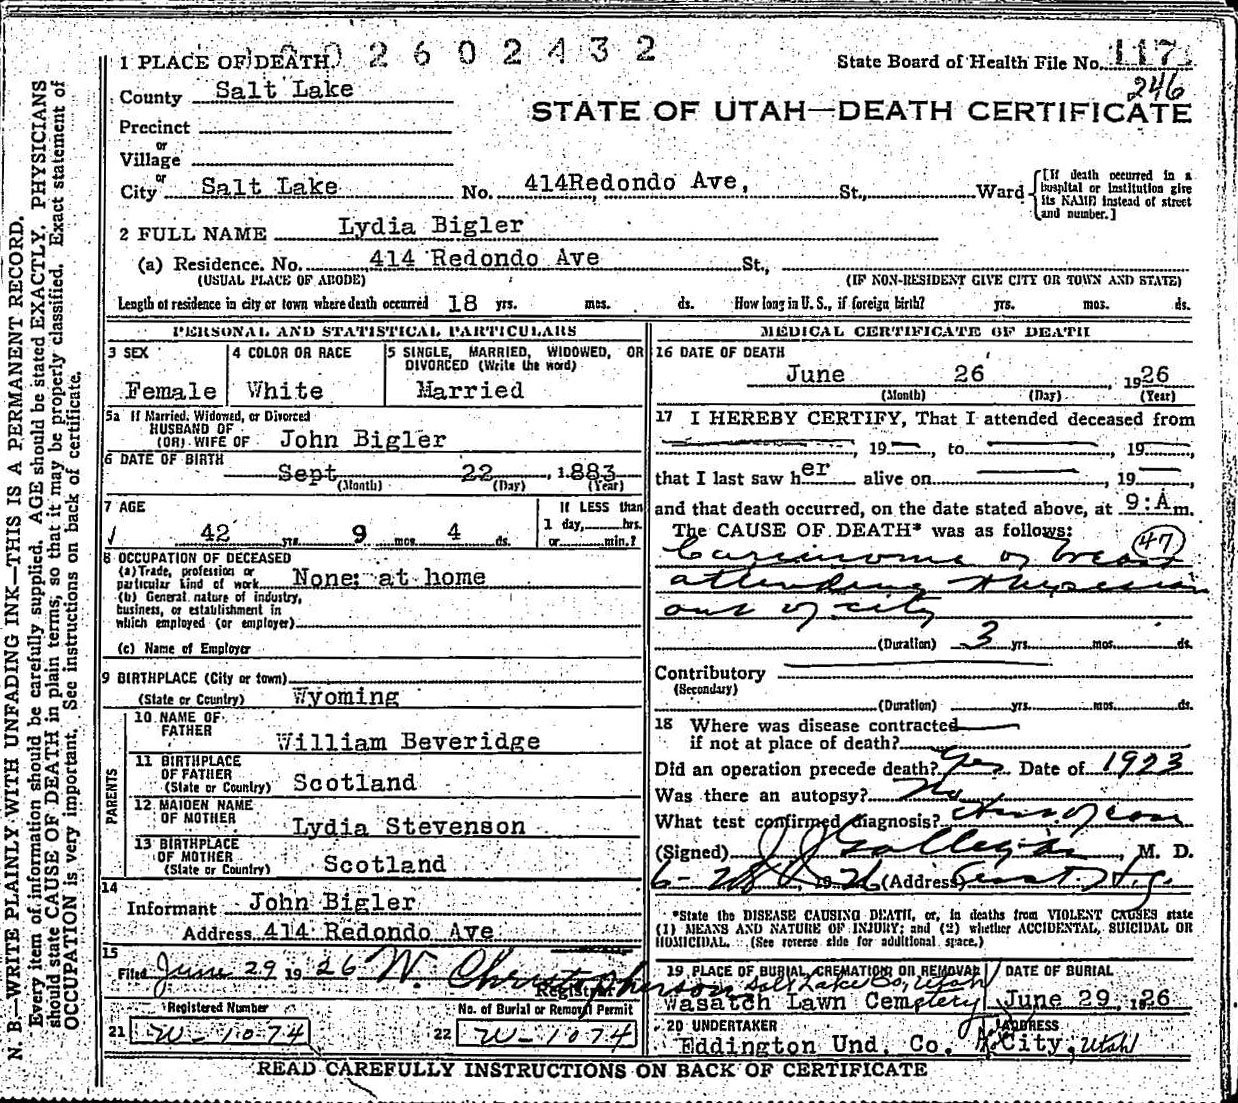 2 6 0 2 4 3 2
1 PLACE OF DEATH.
State Board of Health File No. 117
246
County Salt Lake
STATE OF UTAH—DEATH CERTIFICATE
Precinct
or
Village
or
City Salt Lake No. 414Redondo Ave, St., Ward
[If death occurred in a hospital or institution give its NAME instead of street and number.]
2 FULL NAME Lydia Bigler
(a) Residence. No. 414 Redondo Ave St.,
(USUAL PLACE OF ABODE) (IF NON-RESIDENT GIVE CITY OR TOWN AND STATE)
Length of residence in city or town where death occurred 18 yrs. mos. ds. How long in U. S., if foreign birth? yrs. mos. ds.
PERSONAL AND STATISTICAL PARTICULARS
3 SEX
Female
4 COLOR OR RACE
White
5 SINGLE, MARRIED, WIDOWED, OR
DIVORCED (Write the word)
Married
5a If Married, Widowed, or Divorced
HUSBAND OF
(OR) WIFE OF John Bigler
6 DATE OF BIRTH
Sept 22, 1883
(Month) (Day) (Year)
7 AGE
42 yrs. 9 mos. 4 ds.
If LESS than
1 day, hrs.
or min.?
8 OCCUPATION OF DECEASED
(a) Trade, profession or
particular kind of work None; at home
(b) General nature of industry,
business, or establishment in
which employed (or employer)
(c) Name of Employer
9 BIRTHPLACE (City or town)
(State or Country) Wyoming
PARENTS
10 NAME OF
FATHER William Beveridge
11 BIRTHPLACE
OF FATHER
(State or Country) Scotland
12 MAIDEN NAME
OF MOTHER Lydia Stevenson
13 BIRTHPLACE
OF MOTHER
(State or Country) Scotland
14
Informant John Bigler
Address 414 Redondo Ave
15
Filed June 29 1926 W. Christopherson
Registrar
Registered Number
21 W-1074
No. of Burial or Removal Permit
22 W-1074
MEDICAL CERTIFICATE OF DEATH
16 DATE OF DEATH
June 26, 1926
(Month) (Day) (Year)
17 I HEREBY CERTIFY, That I attended deceased from
, 19 , to , 19 ,
that I last saw her alive on , 19 ,
and that death occurred, on the date stated above, at 9:A m.
The CAUSE OF DEATH* was as follows:
47
Carcinoma of breast
attending Physician
out of city
(Duration) 3 yrs. mos. ds.
Contributory
(Secondary)
(Duration) yrs. mos. ds.
18 Where was disease contracted
if not at place of death?
Did an operation precede death? Yes Date of 1923
Was there an autopsy? No
What test confirmed diagnosis?
(Signed) M. D.
6-28, 1926 (Address)
*State the DISEASE CAUSING DEATH, or, in deaths from VIOLENT CAUSES state
(1) MEANS AND NATURE OF INJURY; and (2) whether ACCIDENTAL, SUICIDAL OR
HOMICIDAL. (See reverse side for additional space.)
19 PLACE OF BURIAL, CREMATION OR REMOVAL
Salt Lake Co, Utah
Wasatch Lawn Cemetery
DATE OF BURIAL
June 29, 1926
20 UNDERTAKER
Eddington Und. Co.
ADDRESS
City, Utah
READ CAREFULLY INSTRUCTIONS ON BACK OF CERTIFICATE
N. B.—WRITE PLAINLY WITH UNFADING INK—THIS IS A PERMANENT RECORD.
Every item of information should be carefully supplied. AGE should be stated EXACTLY. PHYSICIANS
should state CAUSE OF DEATH in plain terms, so that it may be properly classified. Exact statement of
OCCUPATION is very important. See instructions on back of certificate.